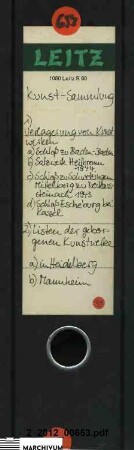 657
LEITZ
1080 Leitz R 80
Kunst-Sammlung
1)
Verlagerung von Kunst
werken
a) Schloß zu Baden-Baden
b) Salzwerk Heilbronn
1944
c) Schloß zu
Neckar
steinach 1943
d) Schloß Escheberg bei
Kassel
2) Listen der gebor-
genen Kunstwerke
a) in Heidelberg
b) Mannheim
2_2012_00653.pdf
MARCHIVUM